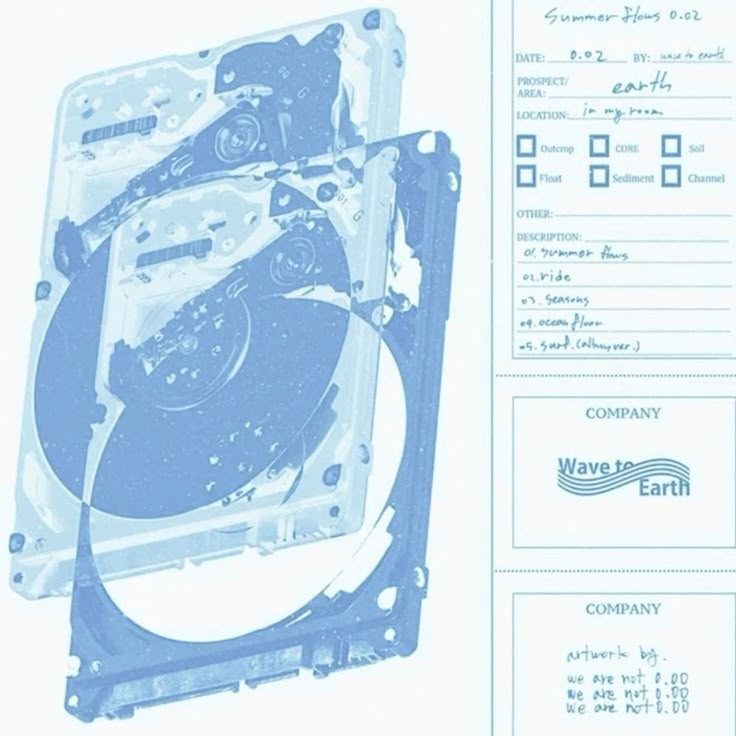 Summer flows 0.02
DATE: 0.02 BY: wave to earth
PROSPECT/
AREA: earth
LOCATION: in my room
Outcrop CORE Soil
Float Sediment Channel
OTHER:
DESCRIPTION:
01. summer flows
02. ride
03. seasons
04. ocean floor
05. surf. (album ver.)
COMPANY
Wave to
Earth
COMPANY
artwork by.
we are not 0.00
we are not 0.00
we are not 0.00